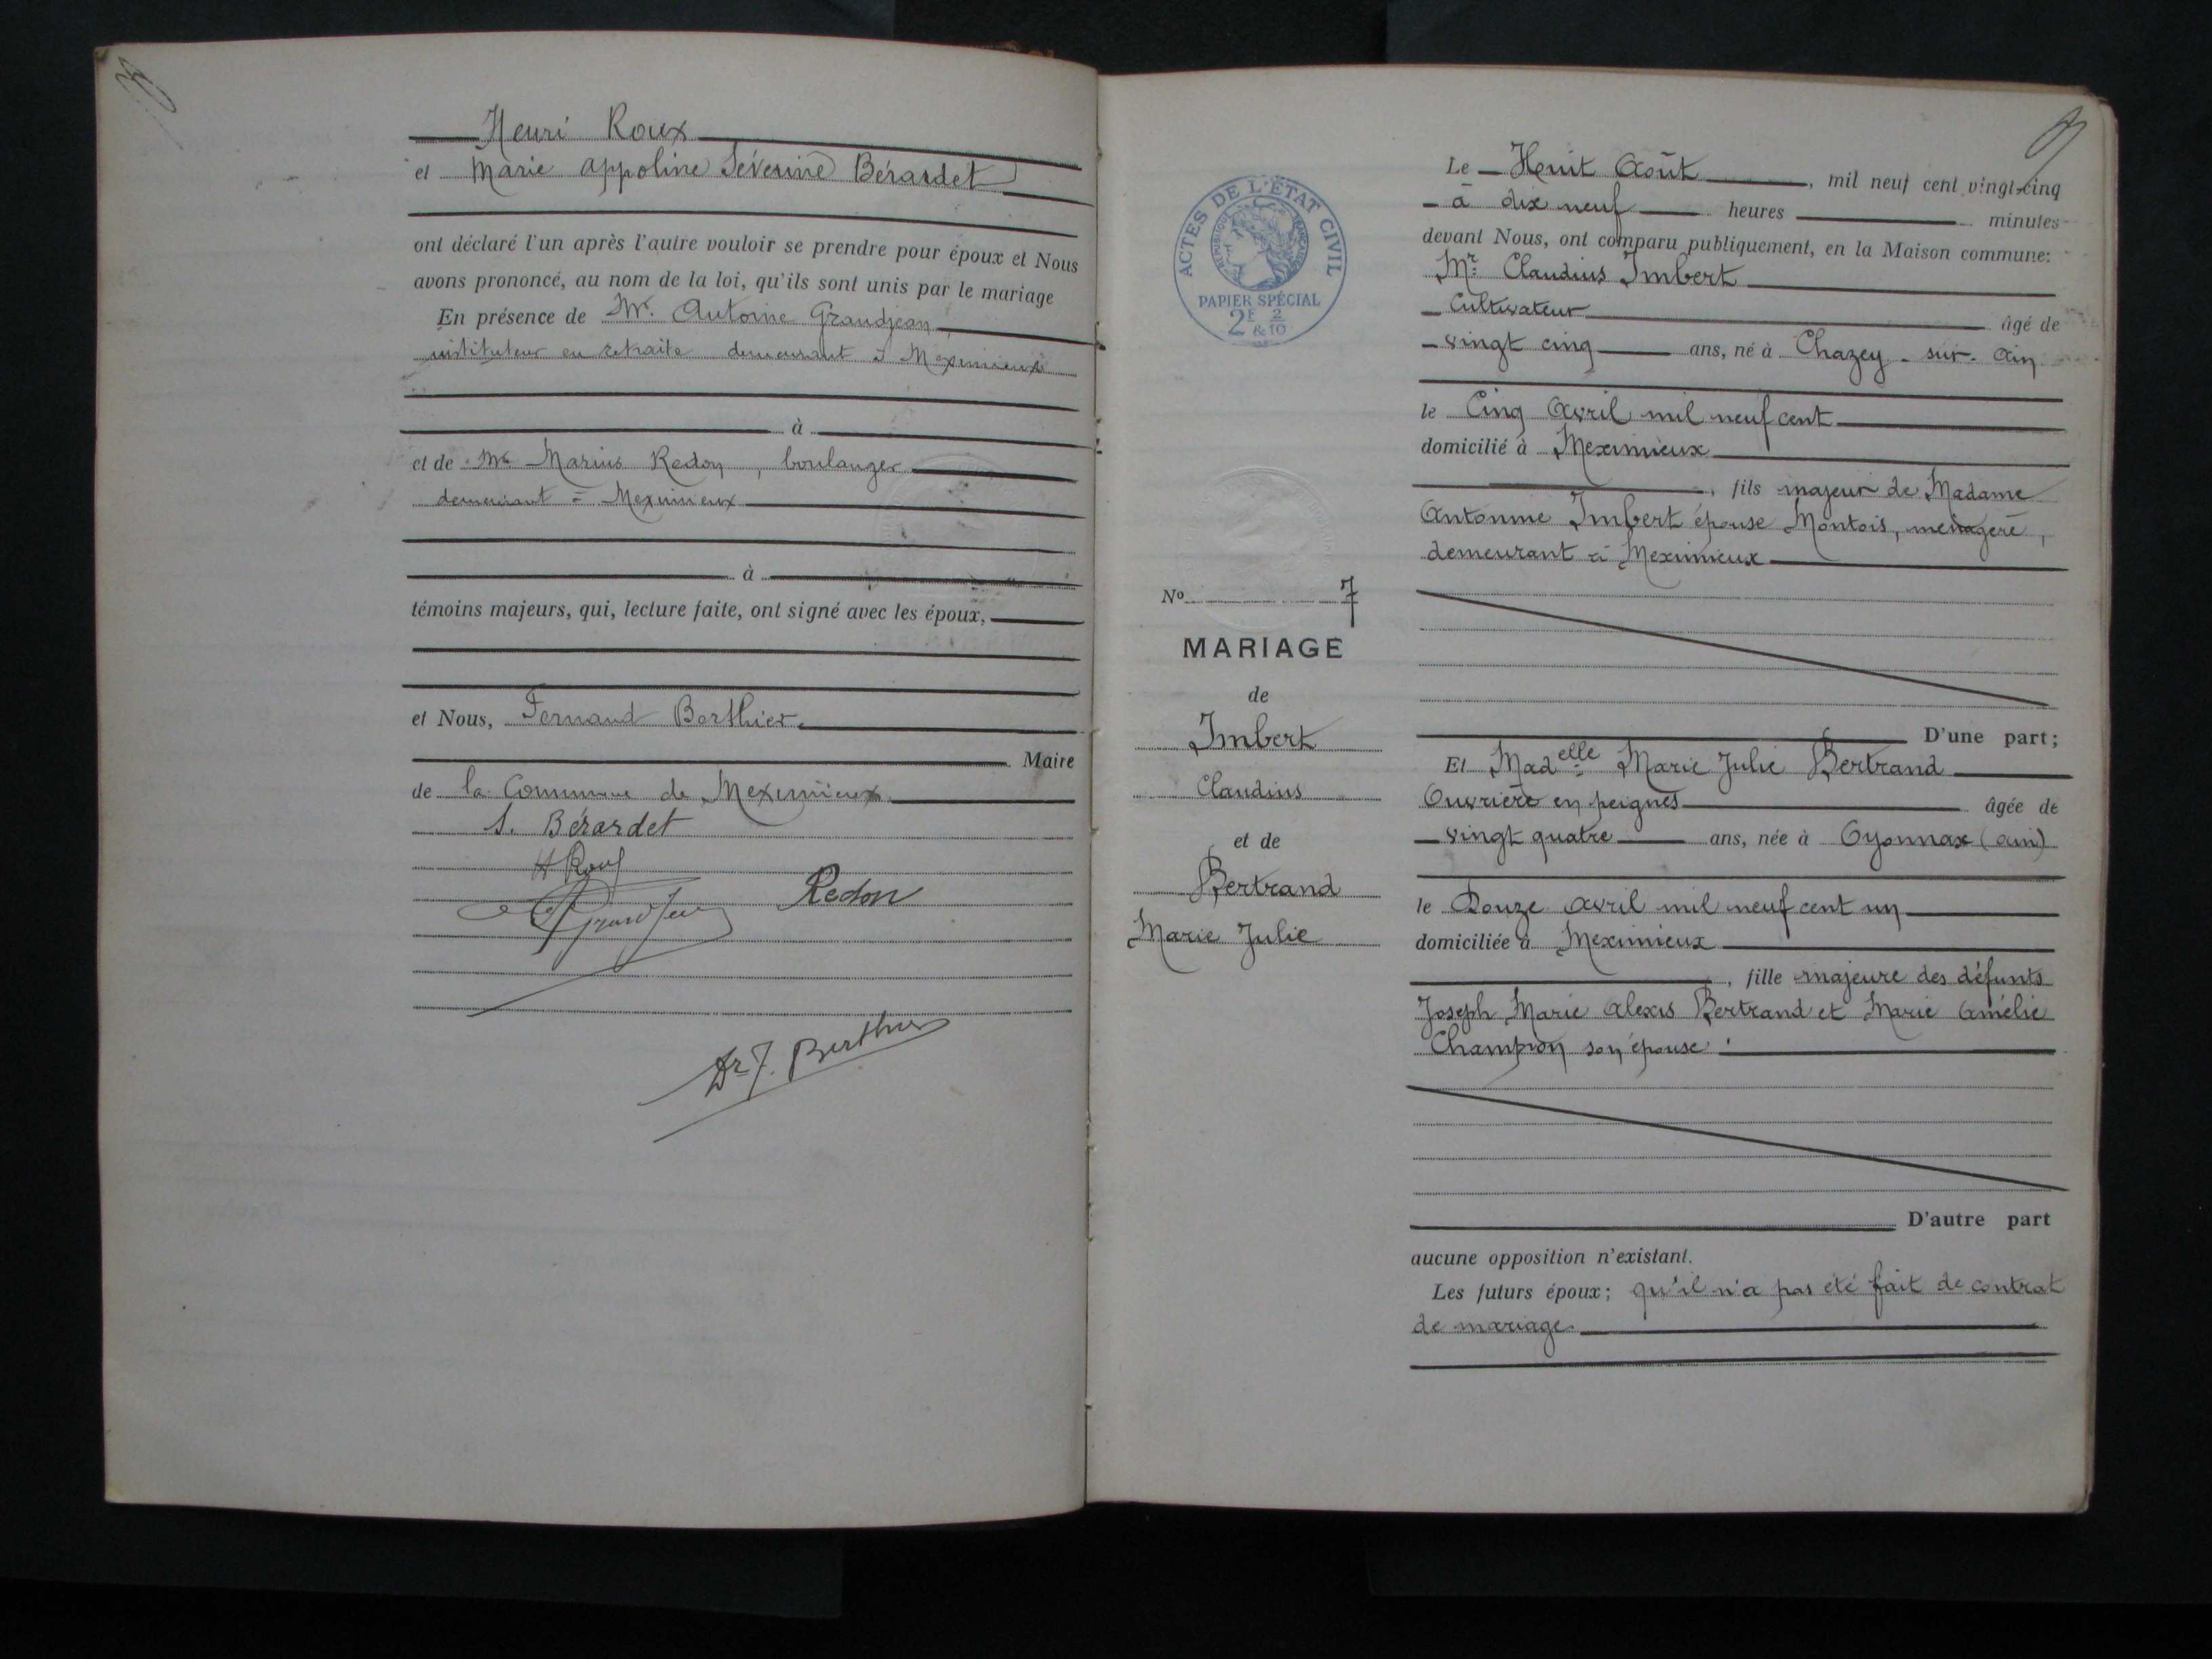 Henri Roux
et Marie Appoline Séverine Bérardet
ont déclaré l'un après l'autre vouloir se prendre pour époux et Nous
avons prononcé, au nom de la loi, qu'ils sont unis par le mariage
En présence de Mr. Antoine Grandjean
instituteur en retraite demeurant à Meximieux
à
et de Mr Marius Redon, boulanger
demeurant à Meximieux
à
témoins majeurs, qui, lecture faite, ont signé avec les époux,
et Nous, Fernand Berthier
Maire
de la Commune de Meximieux
S. Bérardet
H Roux
Grandjean Redon
Dr F. Berthier
ACTES DE L'ÉTAT CIVIL
RÉPUBLIQUE FRANÇAISE
PAPIER SPÉCIAL
2F & 2/10
No 7
MARIAGE
de
Imbert
Claudius
et de
Bertrand
Marie Julie
Le Huit Août, mil neuf cent vingt-cinq
à dix neuf heures minutes
devant Nous, ont comparu publiquement, en la Maison commune:
Mr Claudius Imbert
Cultivateur âgé de
vingt cinq ans, né à Chazey-sur-Ain
le Cinq Avril mil neuf cent
domicilié à Meximieux
, fils majeur de Madame
Antonine Imbert épouse Montois, ménagère,
demeurant à Meximieux
D'une part;
Et Madelle Marie Julie Bertrand
Ouvrière en peignes âgée de
vingt quatre ans, née à Oyonnax (Ain)
le Douze Avril mil neuf cent un
domiciliée à Meximieux
, fille majeure des défunts
Joseph Marie Alexis Bertrand et Marie Amélie
Champion son épouse.
D'autre part
aucune opposition n'existant.
Les futurs époux; qu'il n'a pas été fait de contrat
de mariage.